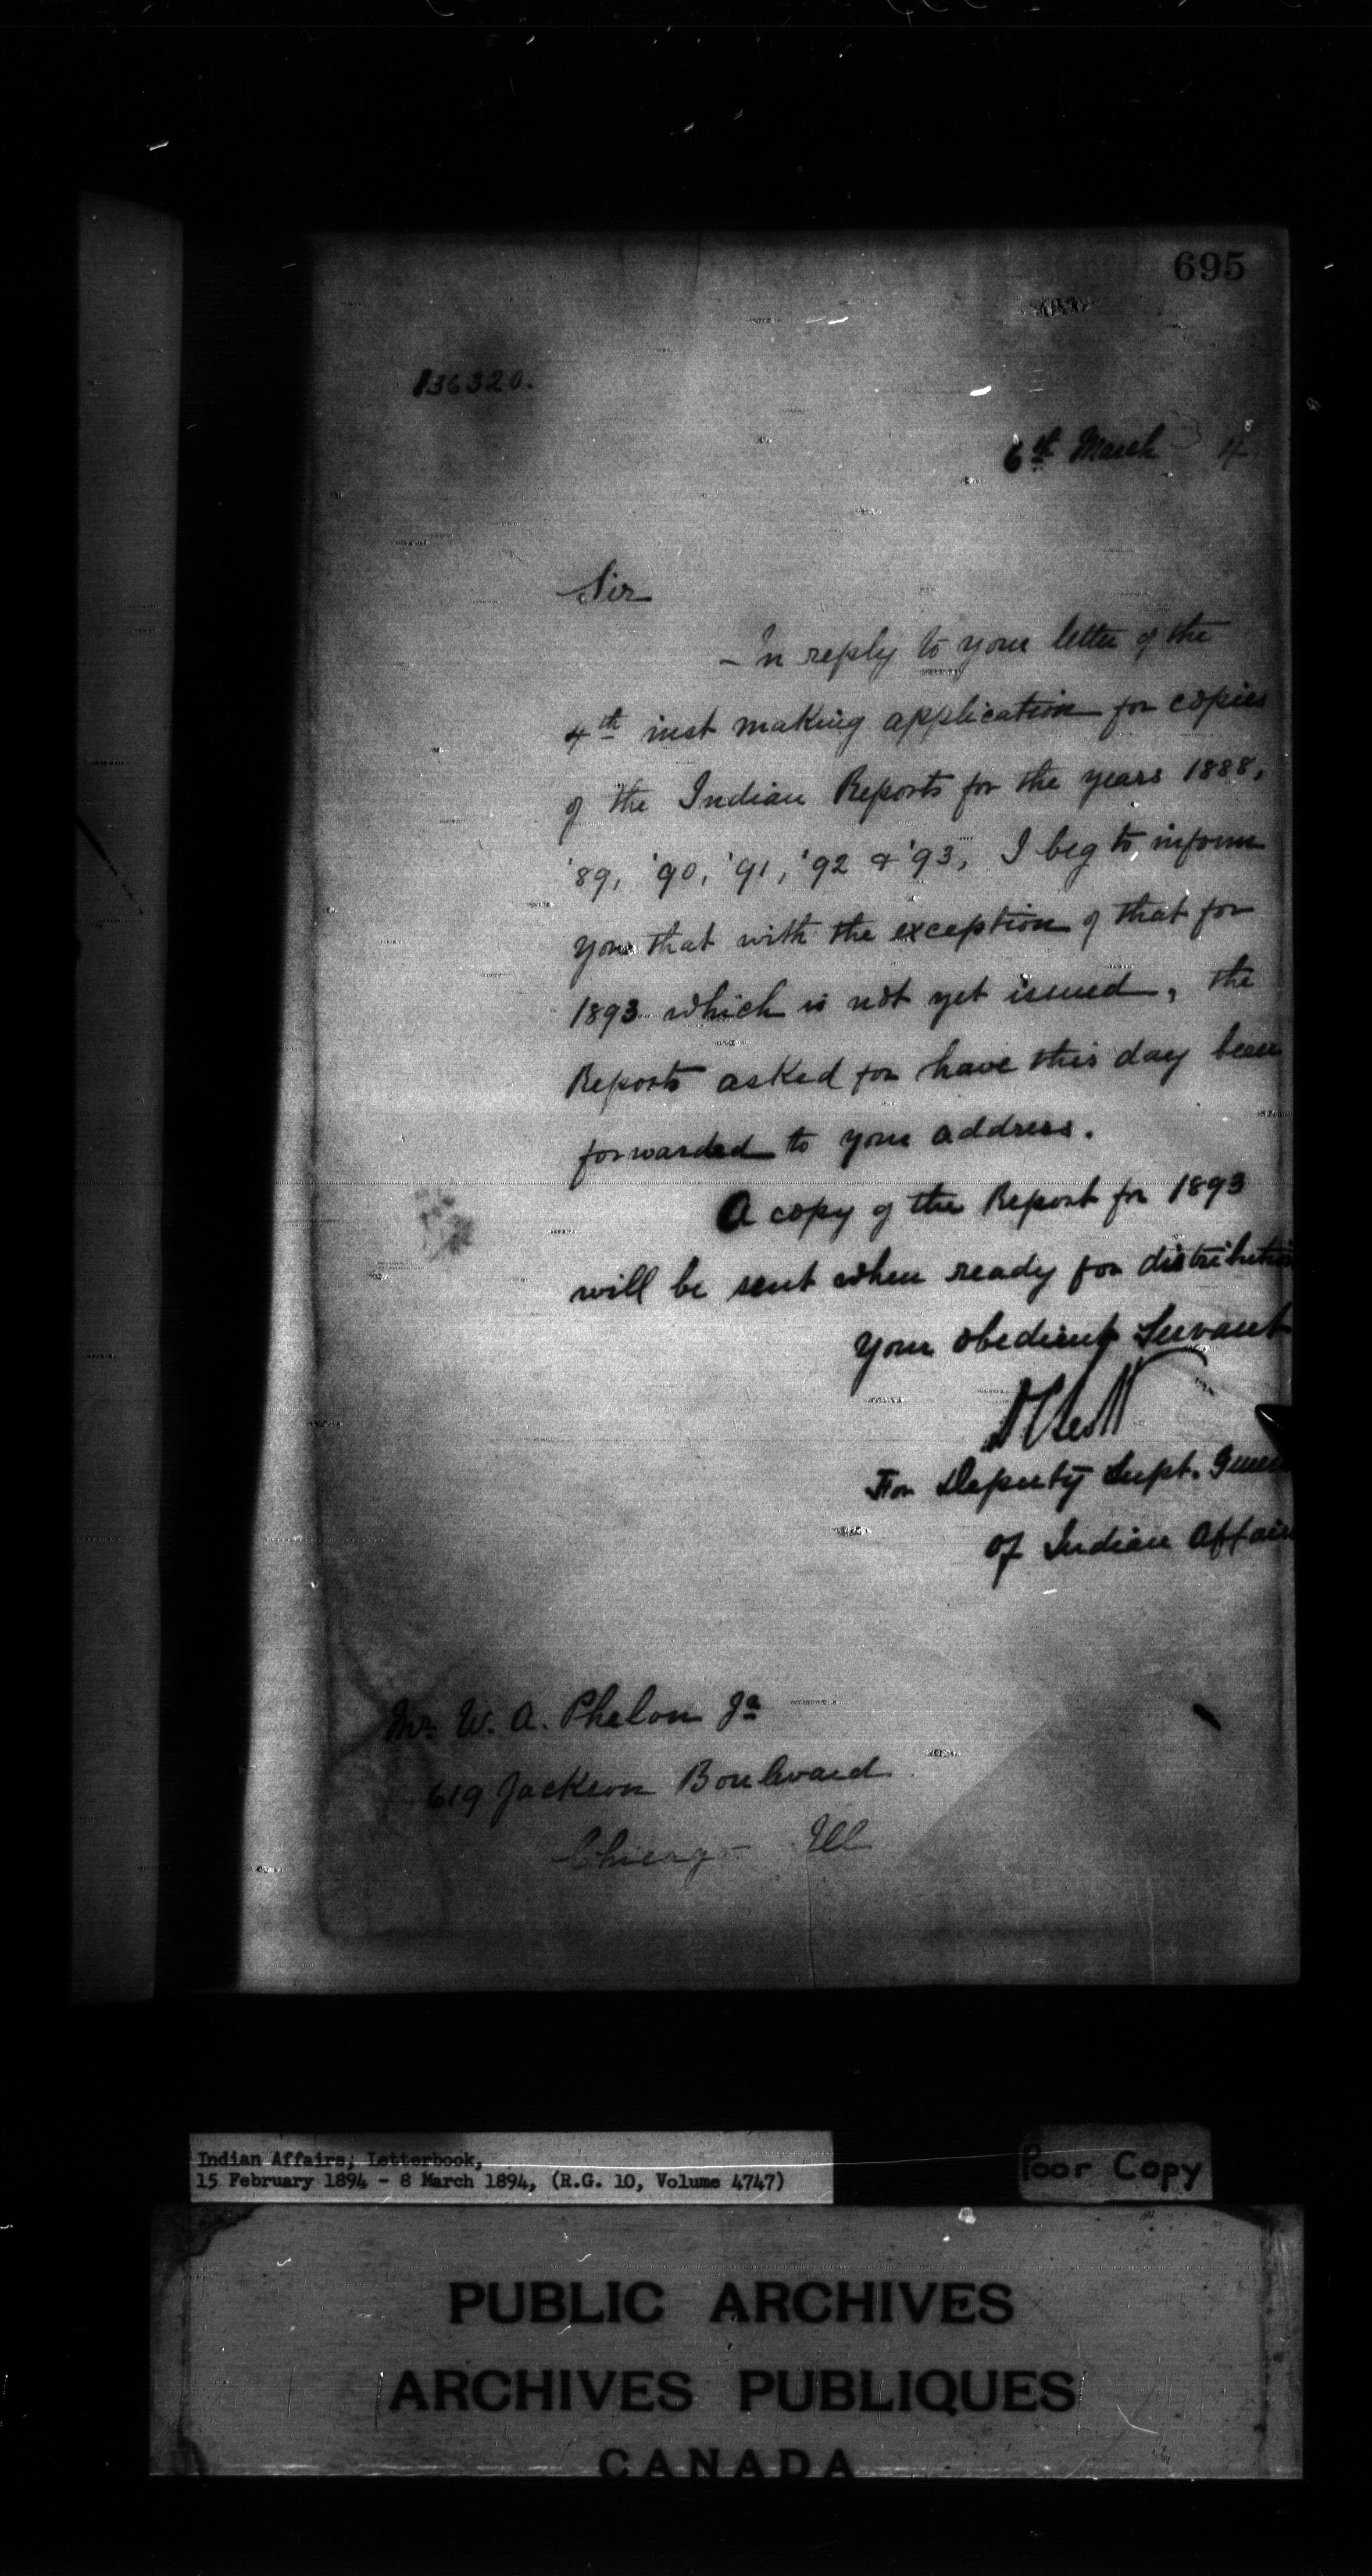 695
136320.
6th March 4
Sir
In reply to your letter of the
4th inst making application for copies
of the Indian Reports for the years 1888,
'89, '90, '91, '92 & '93, I beg to inform
you that with the exception of that for
1893 which is not yet issued, the
Reports asked for have this day been
forwarded to your address.
A copy of the Report for 1893
will be sent when ready for distribution
Your obedient Servant
For Deputy Supt. General
of Indian Affairs
Mr. W. A. Phelon Jr
619 Jackson Boulevard
Chicago Ill
Indian Affairs; Letterbook,
15 February 1894 - 8 March 1894, (R.G. 10, Volume 4747)
Poor Copy
PUBLIC ARCHIVES
ARCHIVES PUBLIQUES
CANADA